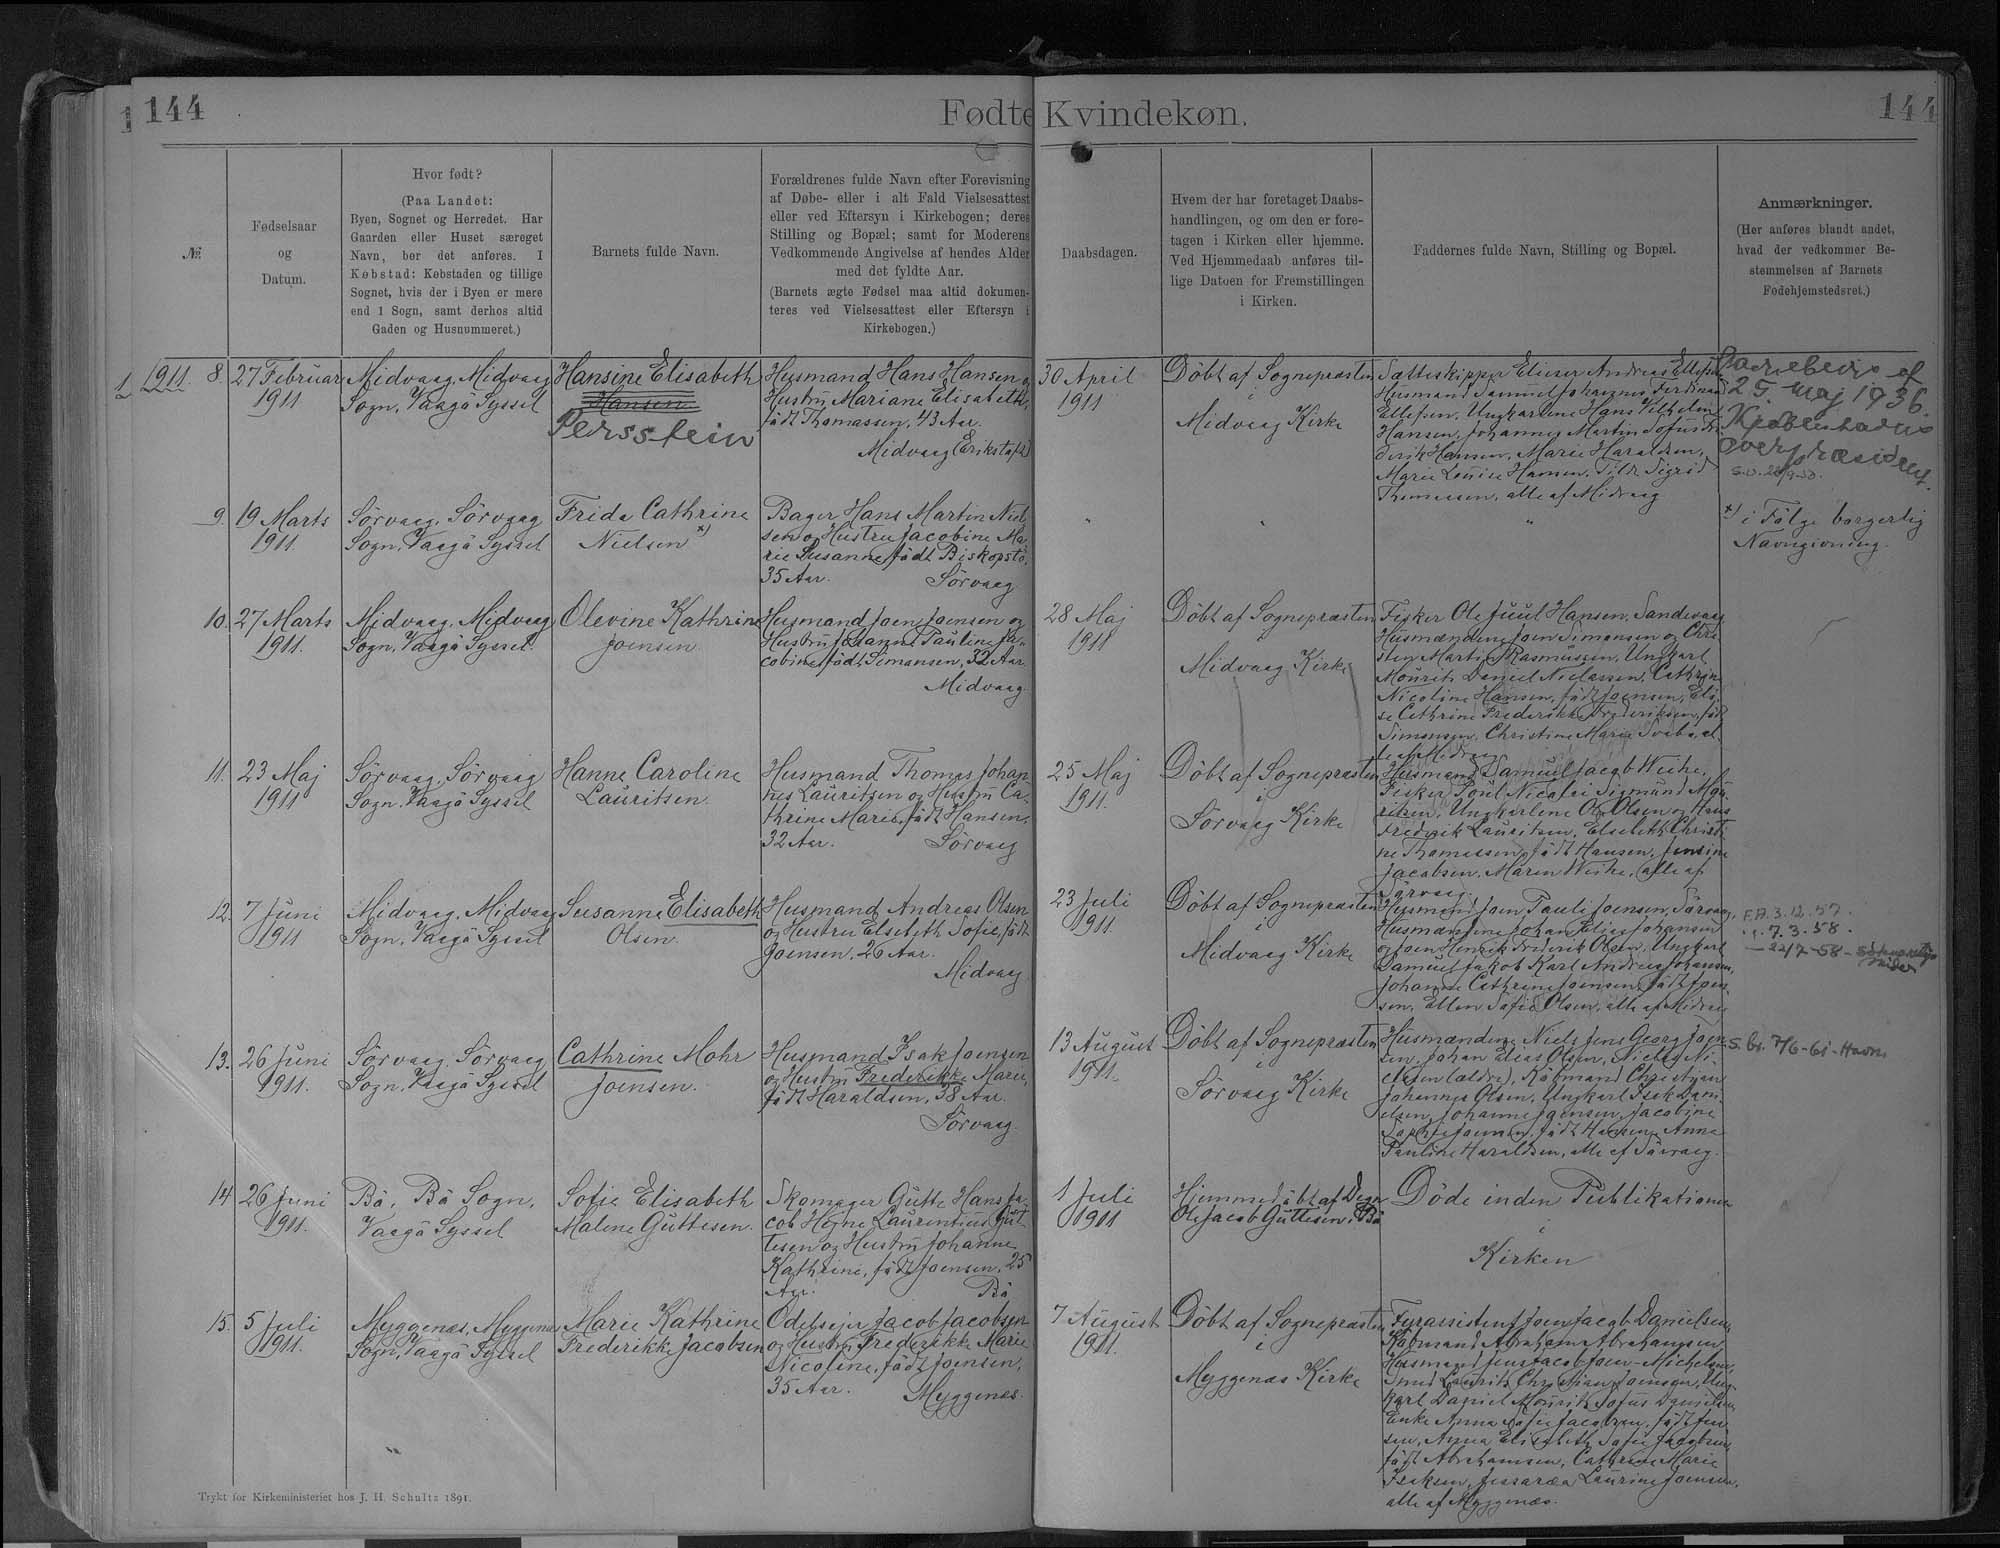 144
Fødte Kvindekøn.
144
№
Fødselsaar
og
Datum.
Hvor født?
(Paa Landet:
Byen, Sognet og Herredet. Har
Gaarden eller Huset særeget
Navn, bør det anføres. I
Købstad: Købstaden og tillige
Sognet, hvis der i Byen er mere
end 1 Sogn, samt derhos altid
Gaden og Husnummeret.)
Barnets fulde Navn.
Forældrenes fulde Navn efter Forevisning
af Døbe- eller i alt Fald Vielsesattest
eller ved Eftersyn i Kirkebogen; deres
Stilling og Bopæl; samt for Moderens
Vedkommende Angivelse af hendes Alder
med det fyldte Aar.
(Barnets ægte Fødsel maa altid dokumen-
teres ved Vielsesattest eller Eftersyn i
Kirkebogen.)
Daabsdagen.
Hvem der har foretaget Daabs-
handlingen, og om den er fore-
tagen i Kirken eller hjemme.
Ved Hjemmedaab anføres til-
lige Datoen for Fremstillingen
i Kirken.
Faddernes fulde Navn, Stilling og Bopæl.
Anmærkninger.
(Her anføres blandt andet,
hvad der vedkommer Be-
stemmelsen af Barnets
Fødehjemstedsret.)
1911. 8. 27 Februar
1911
Midvaag, Midvaag
Sogn, Vaagö Syssel
Hansine Elisabeth
Hansen
Persstein
Husmand Hans Hansen og
Hustru Mariane Elisabeth,
födt Thomassen, 43 Aar.
Midvaag
30 April
1911
Döbt af Sognepræsten
i
Midvaag Kirke
Sætteskipper Elieser Andreas Ellefsen
Husmand Samuel Johannes Ferdinand
Ellefsen, Ungkarlene Hans Vilhelm
Hansen, Johannes Martin Sofus
Hansen, Marie Haraldsen,
Marie Louise Hansen, Sigrid
Thomassen, alle af Midvaag
25. Maj 1936.
Københavns
Overpræsident.
9. 19 Marts
1911.
Sörvaag, Sörvaag
Sogn, Vaagö Syssel
Frida Cathrine
Nielsen x)
Bager Hans Martin Niel-
sen og Hustru Jacobine Ma-
rie Susanne, födt Biskopstö,
35 Aar.
Sörvaag
x) i Fölge borgerlig
Navngivning.
10. 27 Marts
1911.
Midvaag, Midvaag
Sogn, Vaagö Syssel.
Olevine Kathrine
Joensen.
Husmand Joen Joensen og
Hustru Johanne Pauline Ja-
cobine, födt Simonsen, 32 Aar.
Midvaag
28 Maj
1911
Döbt af Sognepræsten
Midvaag Kirke
Fisker Ole Juul Hansen, Sandevaag
Husmændene Joen Simonsen og Chri-
sten Martin Rasmussen, Ungkarl
Mourits Daniel Niclassen, Cathrine
Nicoline Hansen, födt Joensen, Eli-
se Cathrine Frederikke Frederiksen, födt
Simonsen, Christine Marie al-
le af Midvaag
11. 23 Maj
1911
Sörvaag, Sörvaag
Sogn, Vaagö Syssel
Hanne Caroline
Lauritsen.
Husmand Thomas Johan-
nes Lauritsen og Hustru Ca-
thrine Marie, födt Hansen,
32 Aar.
Sörvaag
25 Maj
1911.
Döbt af Sognepræsten
i
Sörvaag Kirke
Husmand Samuel Jacob Weihe,
Fisker Poul Nicolai Sigmund
Ungkarlene Olsen og Hans
Frederik Lauritsen, Elsebeth Christi-
ne Thomassen, födt Hansen, Jensine
Jacobsen, Maren Weihe, alle af
Sörvaag.
12. 7 Juni
1911
Midvaag, Midvaag
Sogn, Vaagö Syssel
Susanne Elisabeth
Olsen.
Husmand Andreas Olsen
og Hustru Elsebeth Sofie, födt
Joensen, 26 Aar.
Midvaag
23 Juli
1911.
Döbt af Sognepræsten
i
Midvaag Kirke
Husmand Joen Pauli Joensen, Sörvaag,
Husmændene Johan Johansen
og Joen Henrik Frederik Olsen, Ungkarl
Samuel Jakob Karl Andreas Johansen,
Johanne Cathrine Joensen, födt Joen-
sen, Ellen Sofie Olsen, alle af Midvaag
F.A. 3.12.57.
7.3.58.
13. 26 Juni
1911.
Sörvaag, Sörvaag
Sogn, Vaagö Syssel
Cathrine Mohr
Joensen.
Husmand Isak Joensen
og Hustru Frederikke Marie,
födt Haraldsen, 38 Aar.
Sörvaag
13 August
1911.
Döbt af Sognepræsten
i
Sörvaag Kirke
Husmændene Niels Jens Georg Joen-
sen, Johan Elias Olsen, Nielsen
(ældre), Købmand Christian
Johannes Olsen, Ungkarl Isak Dani-
elsen, Johanne Joensen, Jacobine
Sophie Joensen, födt Hansen, Anna
Pauline Haraldsen, alle af Sörvaag.
14. 26 Juni
1911.
Bö, Bö Sogn,
Vaagö Syssel
Sofie Elisabeth
Malene Guttesen.
Skomager Gutte Hans Ja-
cob Høgne Laurentius Gut-
tesen og Hustru Johanne
Kathrine, födt Joensen, 25
Aar.
Bö
1 Juli
1911
Hjemmedöbt af Degn
Ole Jacob Guttesen, Bö
Döde inden Publikationen
i
Kirken
15. 5 Juli
1911.
Myggenæs, Myggenæs
Sogn, Vaagö Syssel
Marie Kathrine
Frederikke Jacobsen
Odelsejer Jacob Jacobsen
og Hustru Frederikke Marie
Nicoline, födt Joensen,
35 Aar.
Myggenæs.
7 August
1911.
Döbt af Sognepræsten
i
Myggenæs Kirke
Fyrassistent Joen Jacob Danielsen,
Købmand Abraham Abrahamsen,
Husmand Jens Jacob Joen-Michelsen,
Smed Laurits Christian Joensen, Ung-
karl Daniel Mourits Sofus Danielsen,
Enke Anna Sofie Jacobsen, födt Jen-
sen, Anna Elisabeth Sofie Jacobsen,
födt Abrahamsen, Cathrine Marie
Isaksen, Laurine Joensen,
alle af Myggenæs.
Trykt for Kirkeministeriet hos J. H. Schultz 1891.